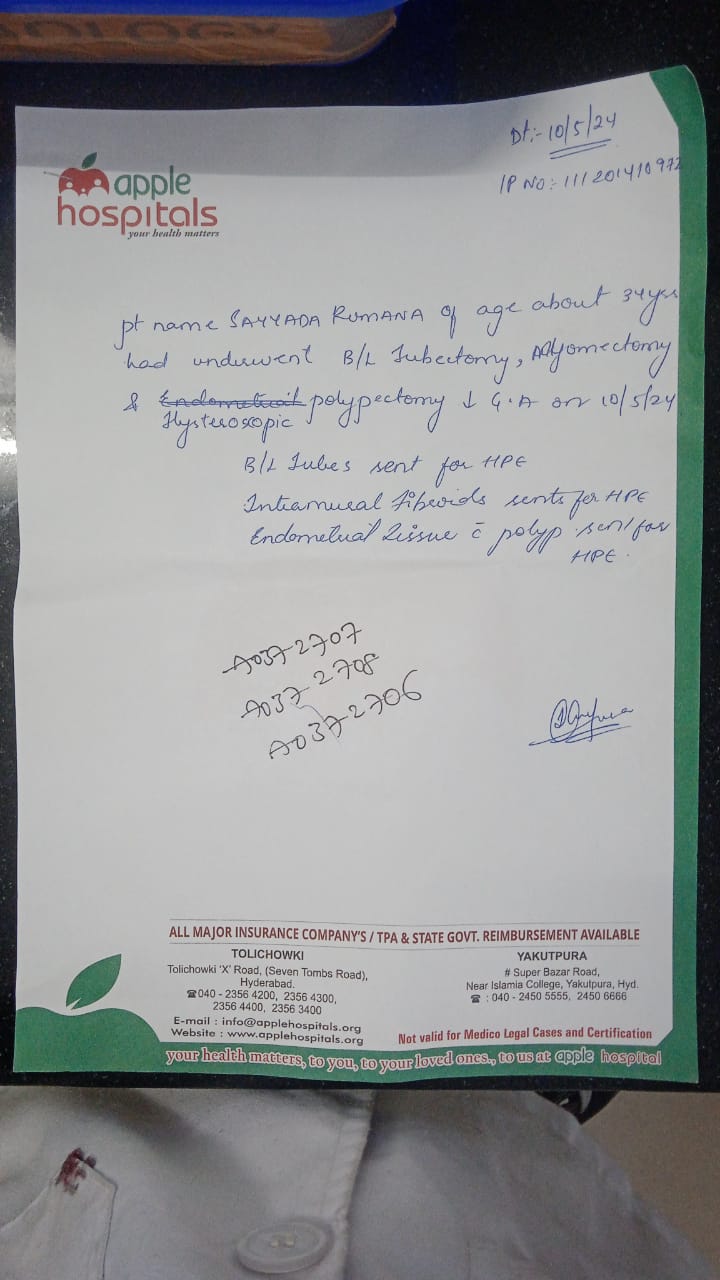 OLOGY
Dt:- 10/5/24
IP NO:- 111201410972
apple
hospitals
your health matters
pt name SAYYADA RUMANA of age about 34yrs
had underwent B/L Tubectomy, Myomectomy
& Endometrial polypectomy ↓ G.A on 10/5/24
Hysteroscopic
B/L Tubes sent for HPE
Intramural Fibroids sents for HPE
Endometrial Tissue c̄ polyp sent for
HPE.
A0372707
A0372708
A0372706
ALL MAJOR INSURANCE COMPANY'S / TPA & STATE GOVT. REIMBURSEMENT AVAILABLE
TOLICHOWKI
Tolichowki 'X' Road, (Seven Tombs Road),
Hyderabad.
☎040 - 2356 4200, 2356 4300,
2356 4400, 2356 3400
E-mail : info@applehospitals.org
Website : www.applehospitals.org
YAKUTPURA
# Super Bazar Road,
Near Islamia College, Yakutpura, Hyd.
☎ : 040 - 2450 5555, 2450 6666
Not valid for Medico Legal Cases and Certification
your health matters, to you, to your loved ones., to us at apple hospital